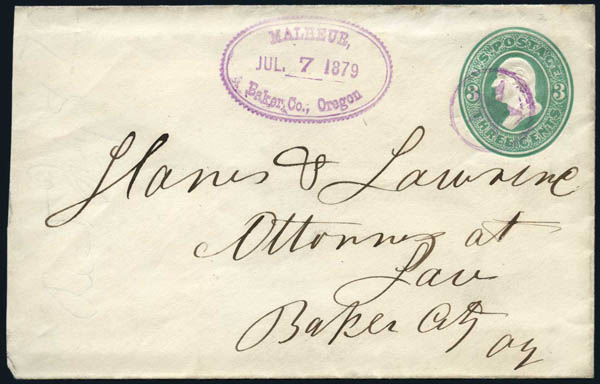 MALHEUR,
JUL. 7 1879
Baker, Co., Oregon
U.S. POSTAGE
3 3
THREE CENTS
& Lawrence
Attorney at
Law
Baker City